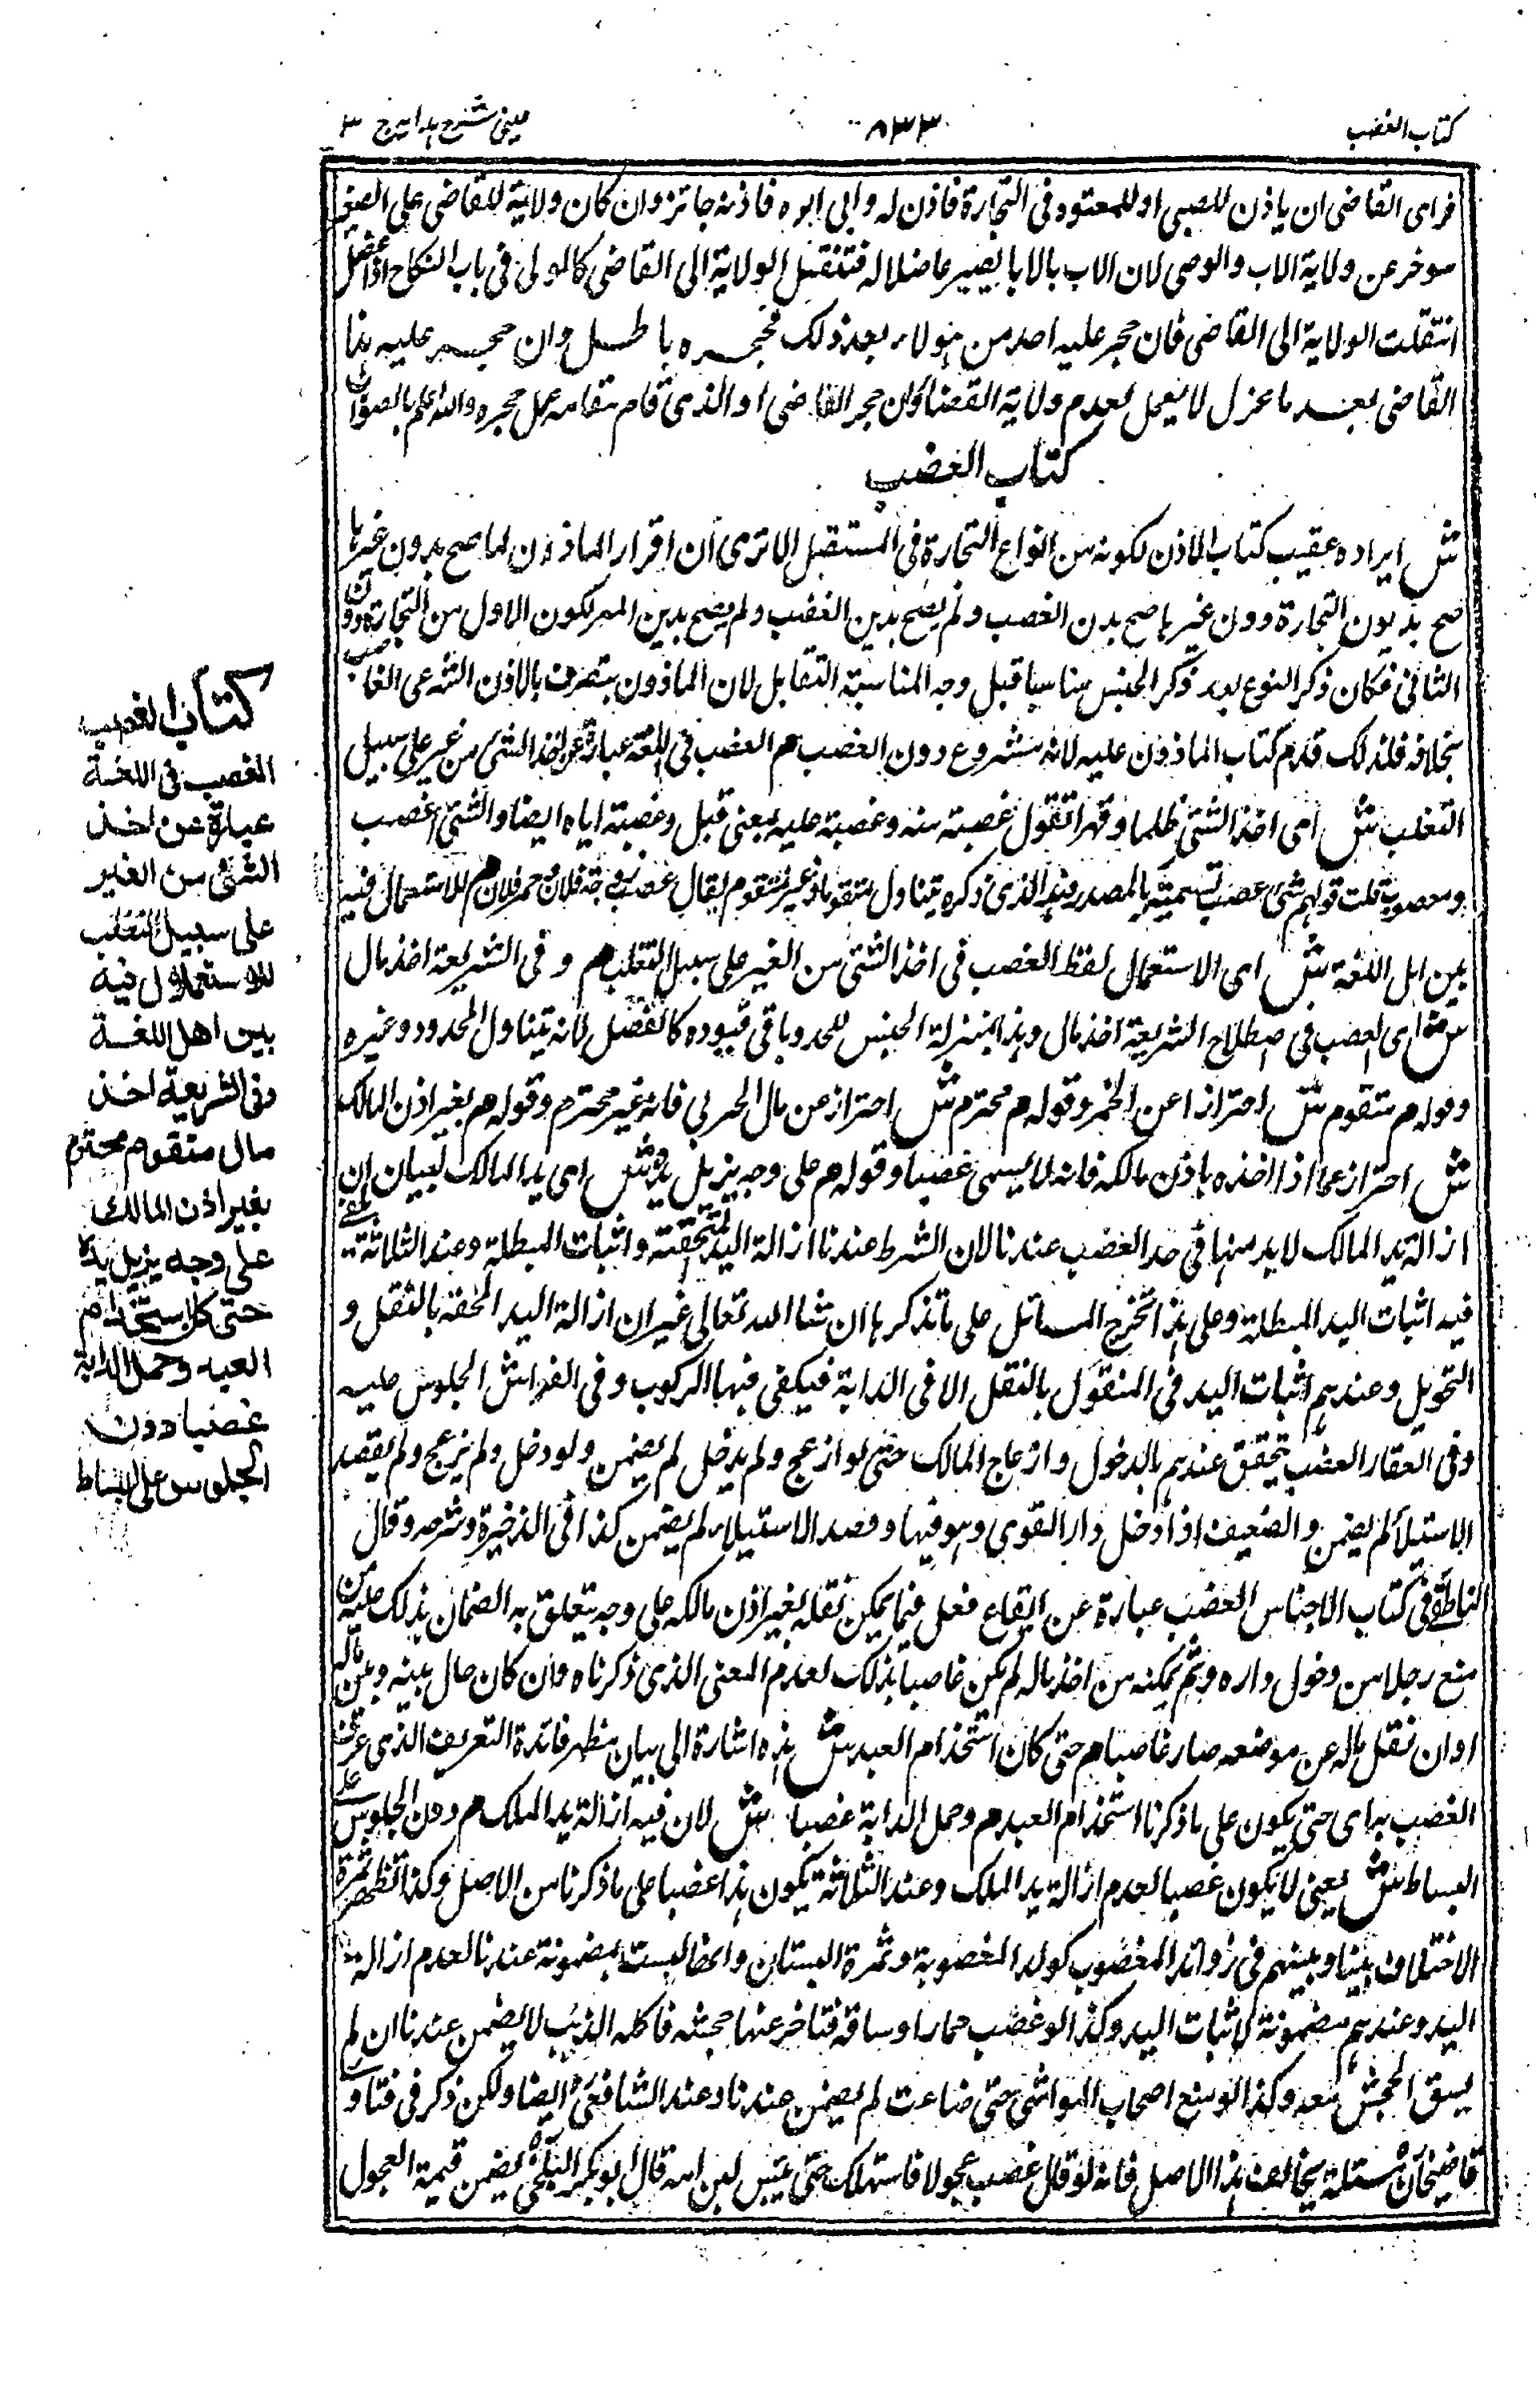 كتاب الغصب
٨٣٣
عيني شرح هداية ج ٣
فراى القاضى ان ياذن للصبى او للمعتوه فى التجارة فاذن له وابى ابوه فاذنه جائز وان كان ولاية للقاضى على الصغير
موخر عن ولاية الاب والوصى لان الاب بالابا يصير عاضلا له فتنتقل الولاية الى القاضى كالولى فى باب النكاح اذا عضل
انتقلت الولاية الى القاضى فان حجر عليه احد من هولاء بعد ذلك فحجره باطل وان حجر عليه هذا
القاضى بعد ما عزل لا يعمل لعدم ولاية القضا وان حجر القاضى او الذى قام مقامه عمل حجره والله اعلم بالصواب
كتاب الغصب
ش ايراده عقيب كتاب الاذن لكونه من انواع التجارة فى المستقبل الا ترى ان اقرار الماذون لما صح بديون غيرها
صح بديون التجارة دون غيرها صح بدين الغصب ولم يصح بدين المهر لكون الاول من التجارة دون
الثانى فكان ذكر النوع بعد ذكر الجنس مناسبا قبل وجه المناسبة التقابل لان الماذون يتصرف بالاذن الشرعى الغاصب
بخلافه فلذلك قدم كتاب الماذون عليه لانه مشروع دون الغصب م الغصب فى اللغة عبارة عن اخذ الشئ من غير على سبيل
التغلب ش اى اخذ الشئ ظلما وقهرا تقول غصبته منه وغصبته عليه بمعنى قبل وغصبته اياه ايضا والشئ غصب
ومغصوب قلت قولهم شئ غصب تسمية بالمصدر وهذا الذى ذكره يتناول متقوما وغير متقوم يقال غصب زوجة فلان وخمر فلان م للاستعمال فيه
بين اهل اللغة ش اى الاستعمال لفظ الغصب فى اخذ الشئ من الغير على سبيل التغلب م وفى الشريعة اخذ مال
ش اى الغصب فى اصطلاح الشريعة اخذ مال وهذا بمنزلة الجنس للحد وباقى قيوده كالفصل لانه يتناول المحدود وغيره
وقوله م متقوم ش احترازا عن الخمر وقوله م محترم ش احتراز عن مال الحربى فانه غير محترم وقوله م بغير اذن المالك
ش احتراز عما اذا اخذه باذن مالكه فانه لا يسمى غصبا وقوله م على وجه يزيل يده ش اى يد المالك لبيان ان
ازالة يد المالك لا بد منها فى حد الغصب عندنا لان الشرط عندنا ازالة اليد المحققة واثبات المبطلة وعند الثلاثة يكفى
فيه اثبات اليد المبطلة وعلى هذا تخرج المسائل على ما تذكرها ان شاء الله تعالى غير ان ازالة اليد المحقة بالنقل و
التحويل وعندهم اثبات اليد فى المنقول بالنقل الا فى الدابة فيكفى فيها الركوب وفى الفراش الجلوس عليه
وفى العقار الغصب يتحقق عندهم بالدخول وازعاج المالك حتى لو ازعج ولم يدخل لم يضمن ولو دخل ولم يزعج ولم يقصد
الاستيلا لم يضمن والضعيف اذا دخل دار القوى وهو فيها وقصد الاستيلاء لم يضمن كذا فى الذخيرة وشرحه وقال
الناطفى فى كتاب الاجناس الغصب عبارة عن ايقاع فعل فيما يمكن نقله بغير اذن مالكه على وجه يتعلق به الضمان بذلك عليه من
منع رجلا من دخول داره ولم يمكنه من اخذ ماله لم يكن غاصبا بذلك لعدم المعنى الذى ذكرناه وان كان حال بينه وبين ماله
او ان نقل ماله عن موضعه صار غاصبا م حتى كان استخدام العبد ش هذه اشارة الى بيان مظهر فائدة التعريف الذى عرف
الغصب به اى حتى يكون على ما ذكرنا استخدام العبد م وحمل الدابة غصبا ش لان فيه ازالة يد الملك م دون الجلوس على
البساط ش يعنى لا يكون غصبا لعدم ازالة يد الملك وعند الثلاثة يكون هذا غصبا على ما ذكرنا من الاصل وكذا تظهر ثمرة
الاختلاف بيننا وبينهم فى زوائد المغصوب كولد المغصوبة وثمرة البستان وانها ليست بمضمونة عندنا لعدم ازالة
اليد وعندهم مضمونة لاثبات اليد وكذا لو غصب حمارا وساقه فتاخر عنها جحشه فاكله الذئب لا يضمن عندنا ان لم
يسق الجحش معه وكذا لو منع اصحاب المواشى حتى ضاعت لم يضمن عندنا وعند الشافعى ايضا ولكن ذكر فى فتاوى
قاضيخان مسئلة يخالف هذا الاصل فانه لو قال غصب عجولا فاستهلكه حتى يبس لبن امه قال ابو بكر البلخى يضمن قيمة العجول
كتاب الغصب
الغصب فى اللغة
عبارة عن اخذ
الشئ من الغير
على سبيل التغلب
للاستعمال فيه
بين اهل اللغة
وفى الشريعة اخذ
مال متقوم محترم
بغير اذن المالك
على وجه يزيل يده
حتى كان استخدام
العبد وحمل الدابة
غصبا دون
الجلوس على البساط